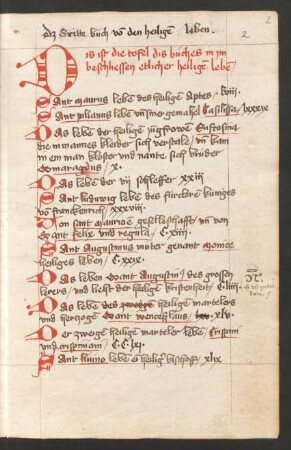 dz dritte buch vō den heiligē leben.
2
Dis ist die tofel dis buches in ym
beschliessen etlicher heiligē lebē
Sant maurus lebē des heiligē Aptes / lviii.
Sant julianus lebē vn̄ siner gemahel Basilissa / lxxxix
Das lebē der heiligē jūgfrowē Eufrosina
die in mannes kleider sich verstale / vn̄ kam
in ein man kloster vnd nante sich brůder
Smaragdus / x.
Das lebē der vij schleffer / xxiij
Sant ludwig lebē des fürclarē kūniges
vō franckenrich / xxxviij
Von sant mauriciē gesellschafft / vn̄ von
Sant felix vnd regula / C.xiiij.
Sant Augustinus můter genant monice
heiliges leben / C.xxix.
Das leben Sant Augustinꝰ des grossen
lerers / vnd liecht der heiligē kristenheit / C.liij
Das lebē des heiligē martelers
vnd hertzogē Sant wenceslaus / xlv.
Der zweigē heiligē marteler lebē / Crispini
vnd crispiniani / C.C.lxj.
Sant kuno lebē eī heiligē bischoffs / xlix